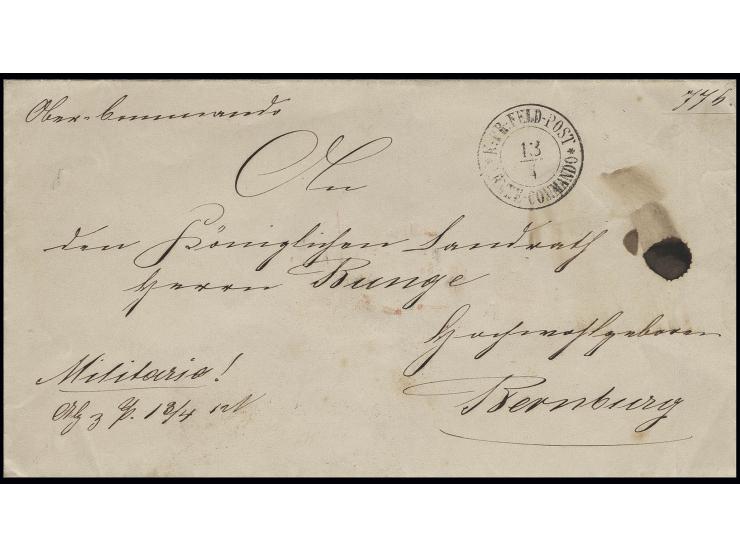 Ober-Commando
776.
K:PR:FELD-POST
13/4
OBER-COMMANDO
An
den Königlichen Landrath
Herrn Runge
Hochwohlgeboren
Militaria!
Bernburg
z. P. 13/4